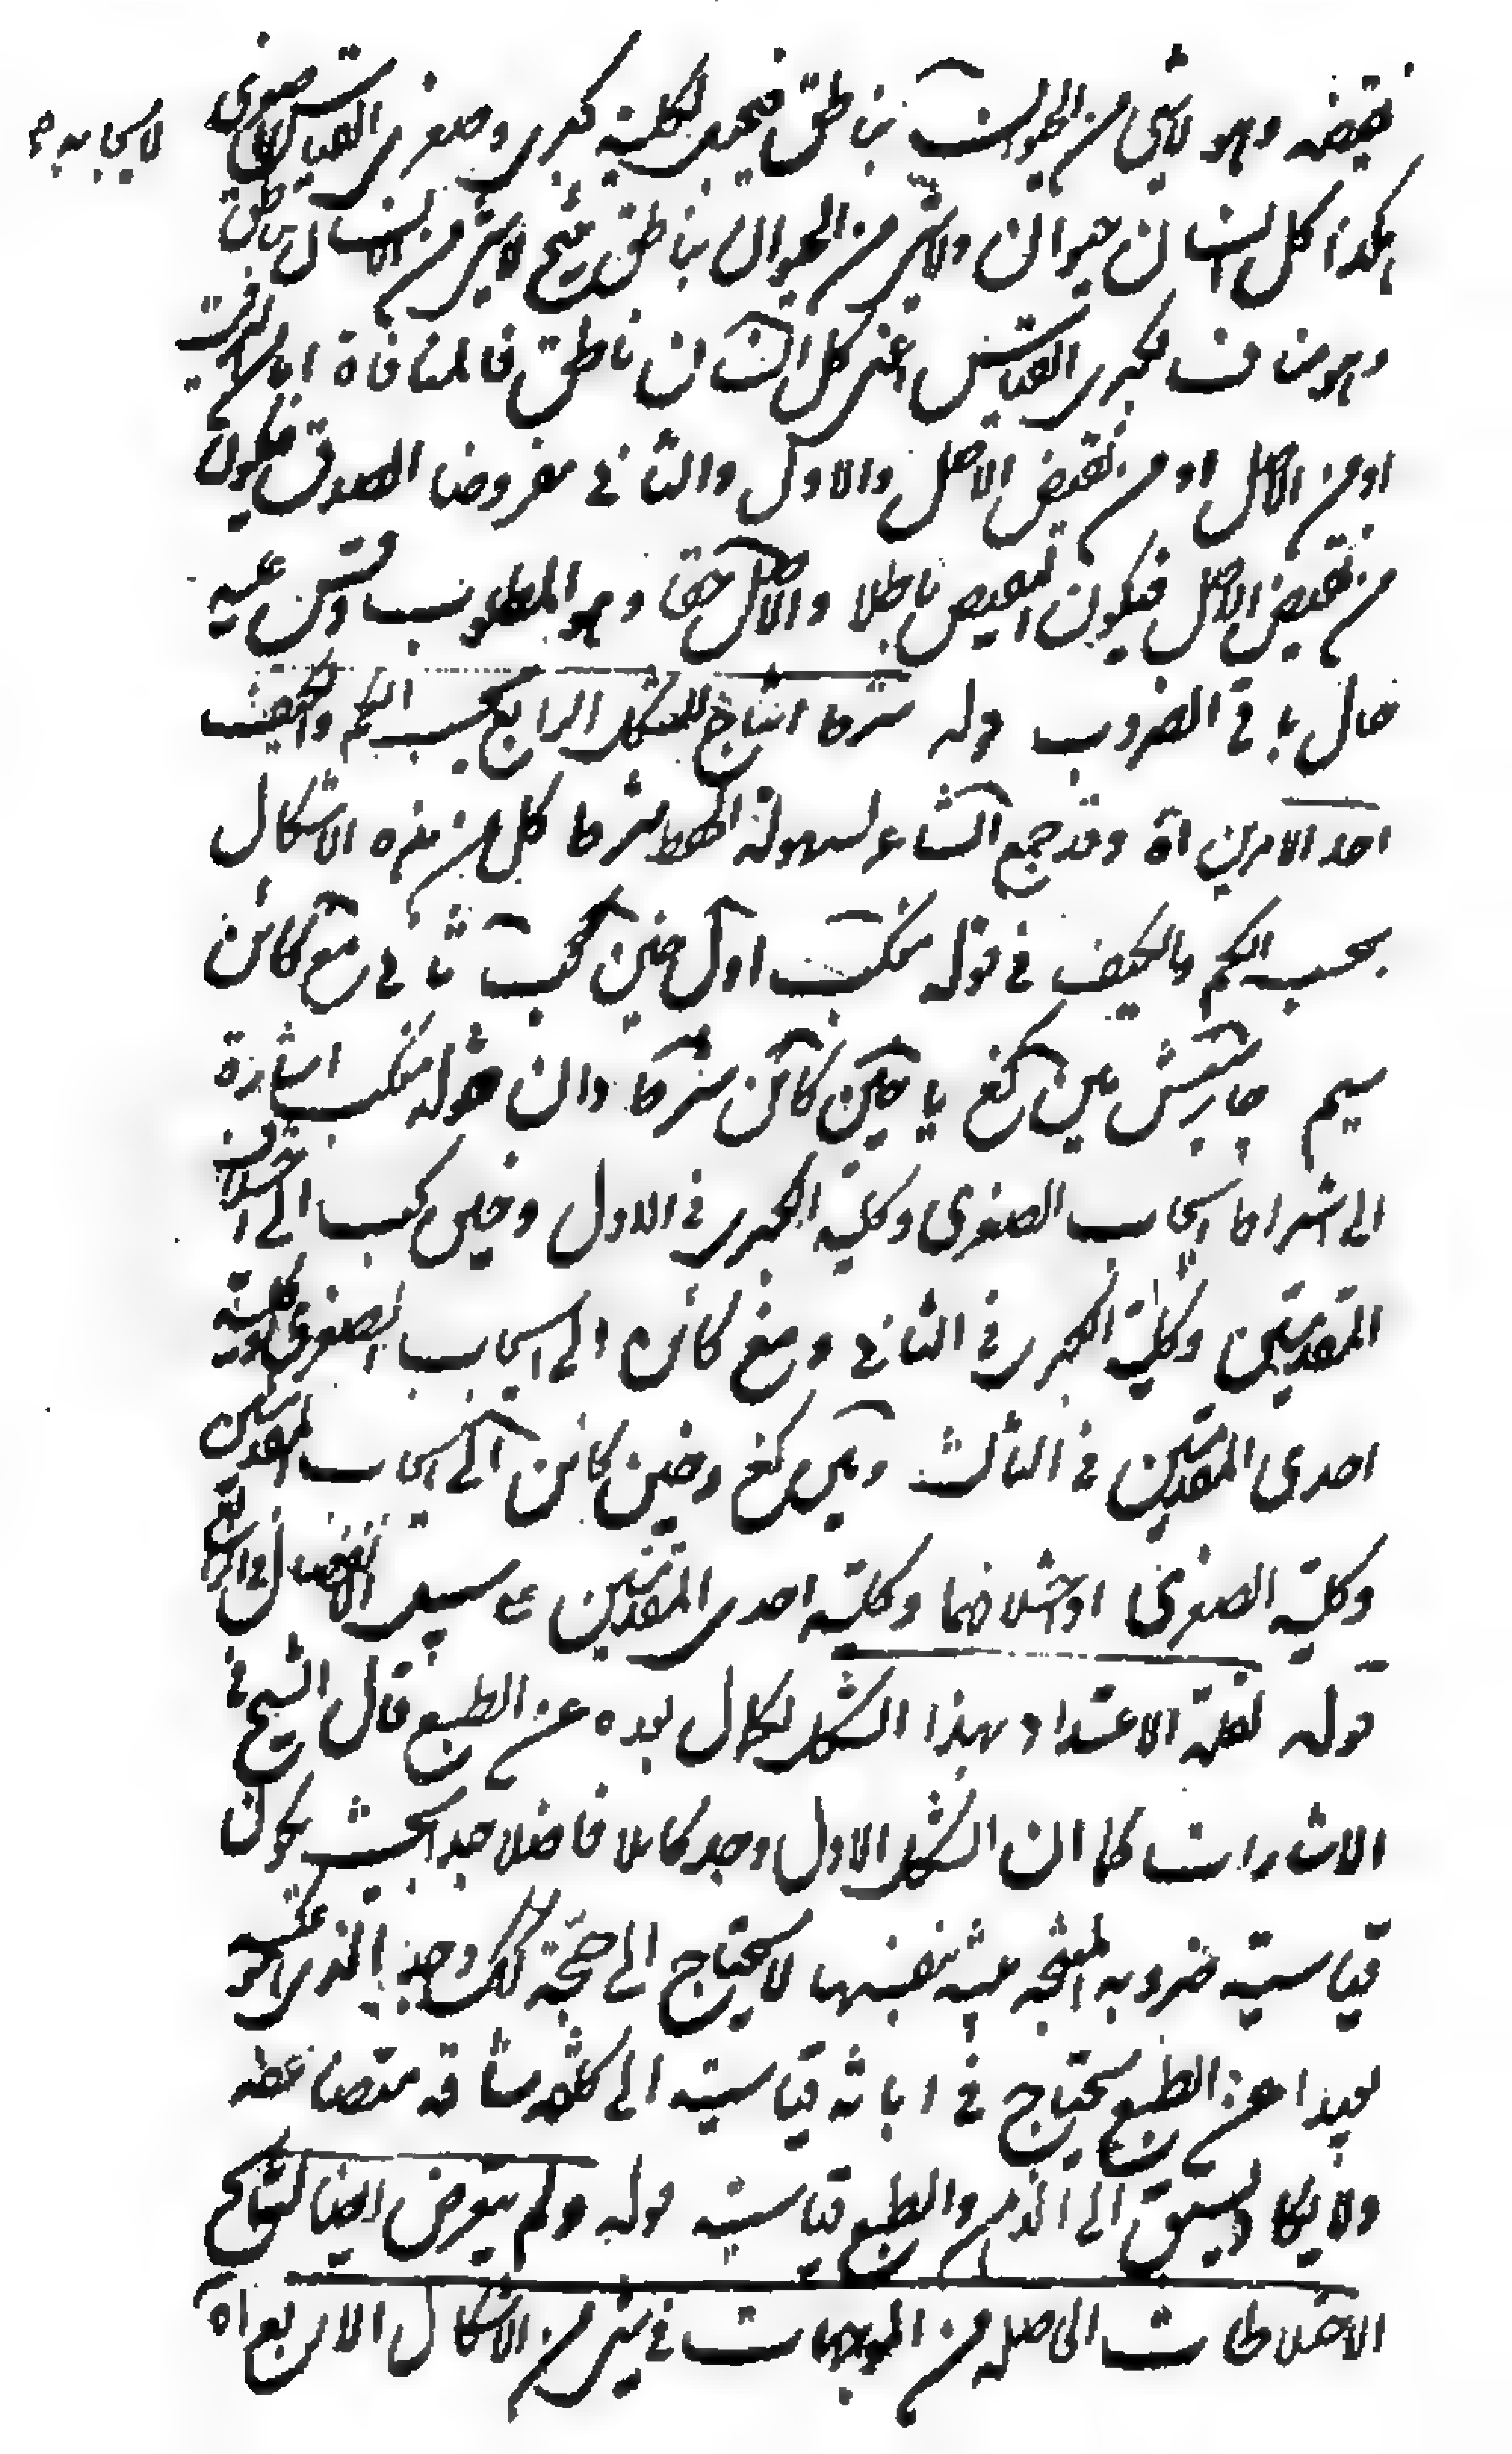 نقيضه وهو لاشئ من الحيوان بناطق فيجعل لكلية كبرى وصغرى القياس صغرى
هكذا كل انسان حيوان ولاشئ من الحيوان بناطق ينتج لاشئ من الانسان بناطق
وهو مناف لكبرى القياس اعنى كل انسان ناطق فالمنافاة اما من
او من الاصل او من نقيض الاصل والاول والثانى مفروضا الصدق فيكون
من نقيض الاصل فيكون النقيض باطلا والاصل حقا وهو المطلوب وقس عليه
حال باقى الضروب قوله شرط انتاج الشكل الرابع بحسب الكم والكيف
احد الامرين اه وقد جمع الشاعر لسهولة الحفظ شرط كل من هذه الاشكال
بحسب الكم والكيف فى قوله مغكب اول خين كب ثانى مغ كائن
سيم چارمش مين كغ يا خين كائن شرط دان فقوله مغكب اشارة
الى اشتراط ايجاب الصغرى وكلية الكبرى فى الاول وخين كب الى اختلاف
المقدمتين وكلية الكبرى فى الثانى ومغ كائن الى ايجاب الصغرى وكلية
احدى المقدمتين فى الثالث ومين كغ وخين كائن الى ايجاب المقدمتين
وكلية الصغرى او اختلافهما وكلية احدى المقدمتين على سبيل الانفصال فى الرابع
قوله لقلة الاعتداد بهذا الشكل لكمال بعده عن الطبع قال الشيخ فى
الاشارات كما ان الشكل الاول وجد كاملا فاضلا جدا بحيث يكون
قياسية ضروبه المنتجة بينة بنفسها لا يحتاج الى حجة كك وجد الذى هو عكسه
بعيدا عن الطبع يحتاج فى ابانة قياسيته الى كلفة شاقة متضاعفة
ولا يكاد يسبق الى الذهن والطبع قياسيته قوله ولم يتعرض ايضا لنتايج
الاختلاطات الحاصلة من الموجهات فى شئ من الاشكال الاربع اه